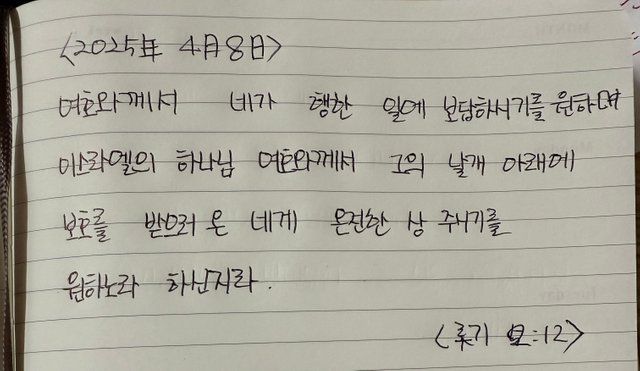 <2025年 4月8日>
여호와께서 네가 행한 일에 보답하시기를 원하며
이스라엘의 하나님 여호와께서 그의 날개 아래에
보호를 받으러 온 네게 온전한 상 주시기를
원하노라 하신지라.
:12>